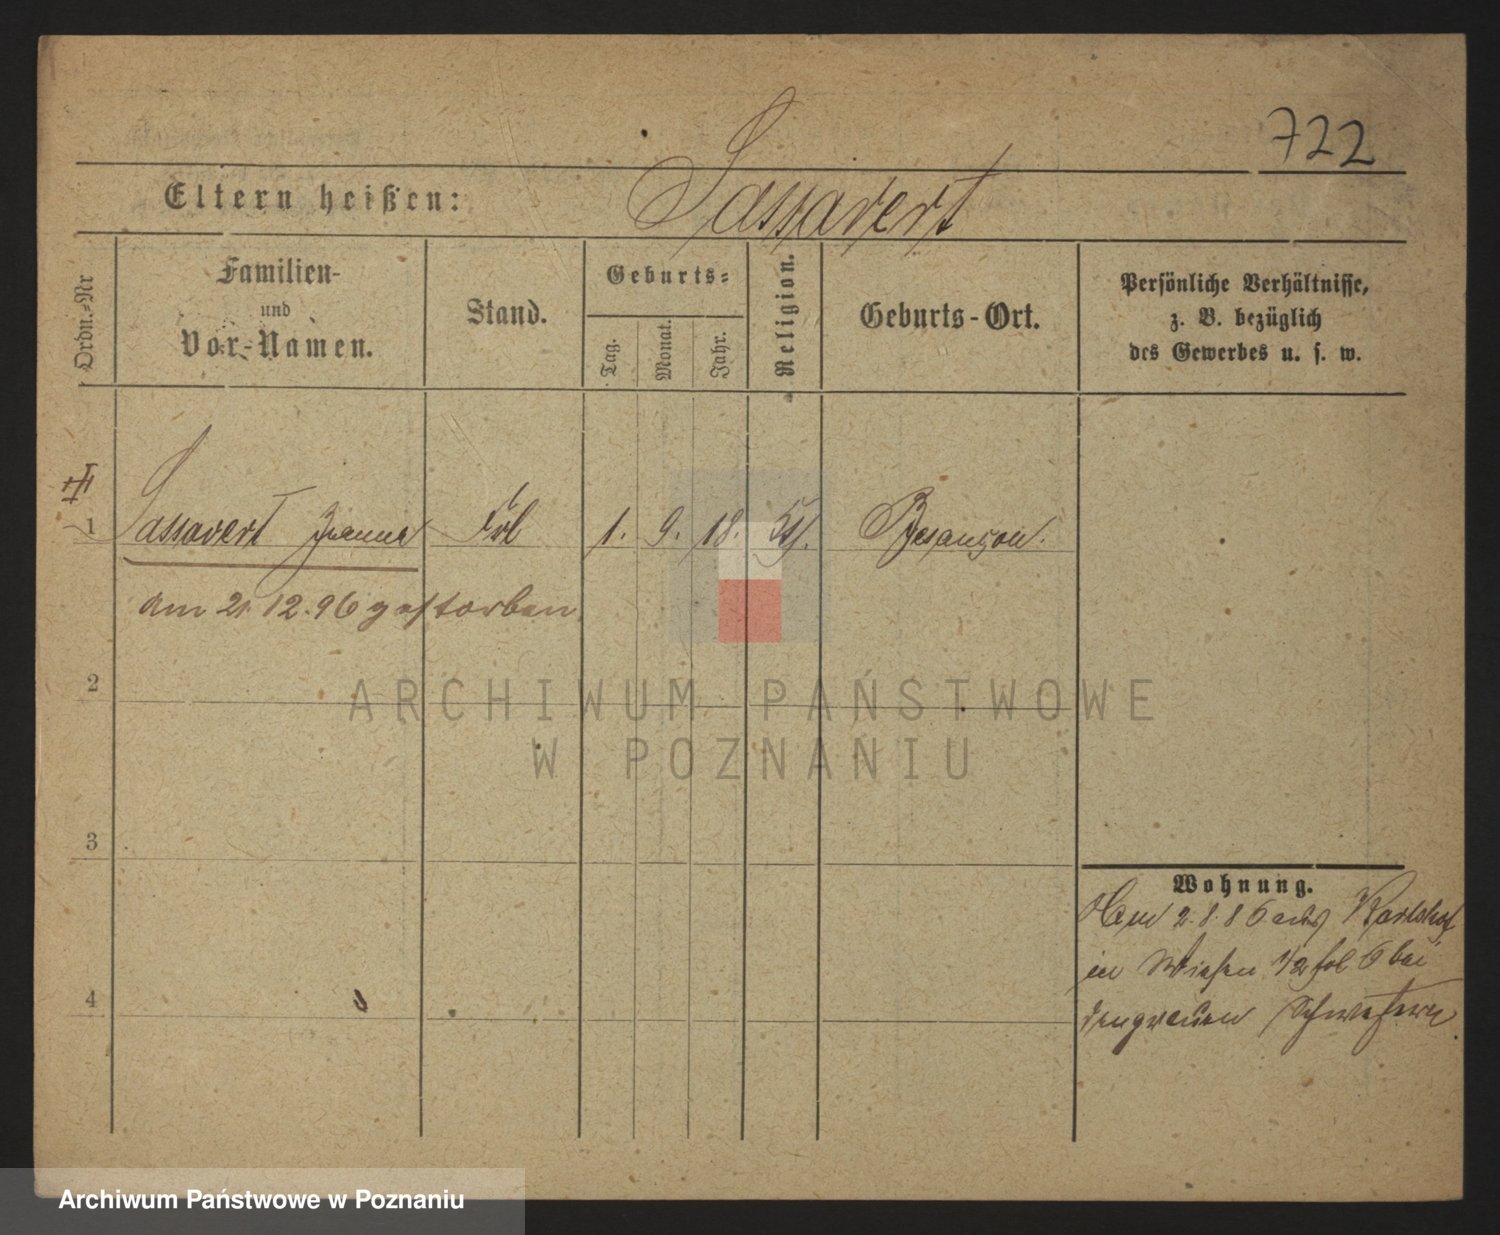 722
Eltern heißen: Sassavert
Ordn.-Nr
Familien-
und
Vor-Namen.
Stand.
Geburts-
Tag.
Monat.
Jahr.
Religion.
Geburts-Ort.
Persönliche Verhältnisse,
z. B. bezüglich
des Gewerbes u. s. w.
1 Sassavert Jeanne Frl 1. 9. 18. Besançon.
am 21 12.96 gestorben
2
ARCHIWUM PAŃSTWOWE
W POZNANIU
3
Wohnung.
2.8.86 aus Karlshof
in Wiesen 1/2 fol 6 bei
den grauen Schwestern
4
Archiwum Państwowe w Poznaniu